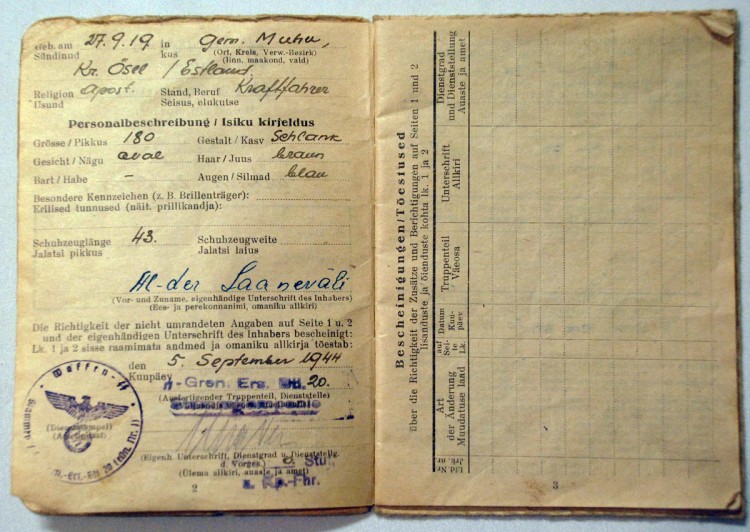 Geb. am 27.9.19 in gem. Muhu,
Sündinud kus (Ort, Kreis, Verw.-Bezirk)
(linn, maakond, vald)
Kr. Ösel / Estland.
Religion apost. Stand, Beruf Kraftfahrer
Usund Seisus, elukutse
Personalbeschreibung / Isiku kirjeldus
Grösse / Pikkus 180 Gestalt / Kasv Schlank
Gesicht / Nägu oval Haar / Juus braun
Bart / Habe – Augen / Silmad blau
Besondere Kennzeichen (z. B. Brillenträger):
Erilised tunnused (näit. prillikandja):
Schuhzeuglänge 43. Schuhzeugweite
Jalatsi pikkus Jalatsi laius
Al-der Laaneväli
(Vor- und Zuname, eigenhändige Unterschrift des Inhabers)
(Ees- ja perekonnanimi, omaniku allkiri)
Die Richtigkeit der nicht umrandeten Angaben auf Seite 1 u. 2
und der eigenhändigen Unterschrift des Inhabers bescheinigt:
Lk. 1 ja 2 sisse raamimata andmed ja omaniku allkirja tõestab:
den 5. September 1944
Kuupäev
Gren. Ers. Btl. 20.
(Ausfertigender Truppenteil, Dienststelle)
Waffen-SS
(Dienststempel)
(Eigenh. Unterschrift, Dienstgrad u. Dienststellg.
d. Vorges.)
(Ülema allkiri, auaste ja amet)
u. Kp.-Fhr.
2
Bescheinigungen/Tõestused
über die Richtigkeit der Zusätze und Berichtigungen auf Seiten 1 und 2
lisanduste ja õienduste kohta lk. 1 ja 2
Lfd Nr
Jrk. nr.
Art
der Änderung
Muudatuse laad
auf
Sei-
te
Lk
Datum
Kuu-
päev
Truppenteil
Väeosa
Unterschrift
Allkiri
Dienstgrad
und Dienststellung
Auaste ja amet
3